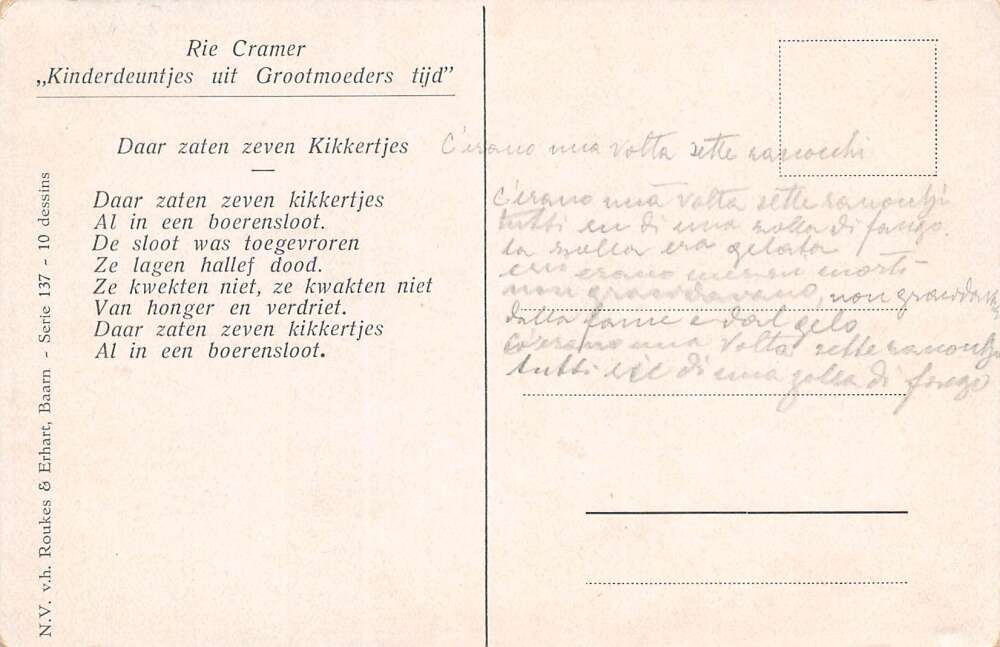 Rie Cramer
„Kinderdeuntjes uit Grootmoeders tijd”
Daar zaten zeven Kikkertjes
Daar zaten zeven kikkertjes
Al in een boerensloot.
De sloot was toegevroren
Ze lagen hallef dood.
Ze kwekten niet, ze kwakten niet
Van honger en verdriet.
Daar zaten zeven kikkertjes
Al in een boerensloot.
N.V. v.h. Roukes & Erhart, Baarn - Serie 137 - 10 dessins
C'erano una volta sette ranocchi
C'erano una volta sette ranocchi
tutti di una zolla di fango.
la zolla era gelata
erano morti
non gracidavano, non
dalla fame e dal gelo
C'erano una volta sette ranocchi
tutti di una zolla di fango